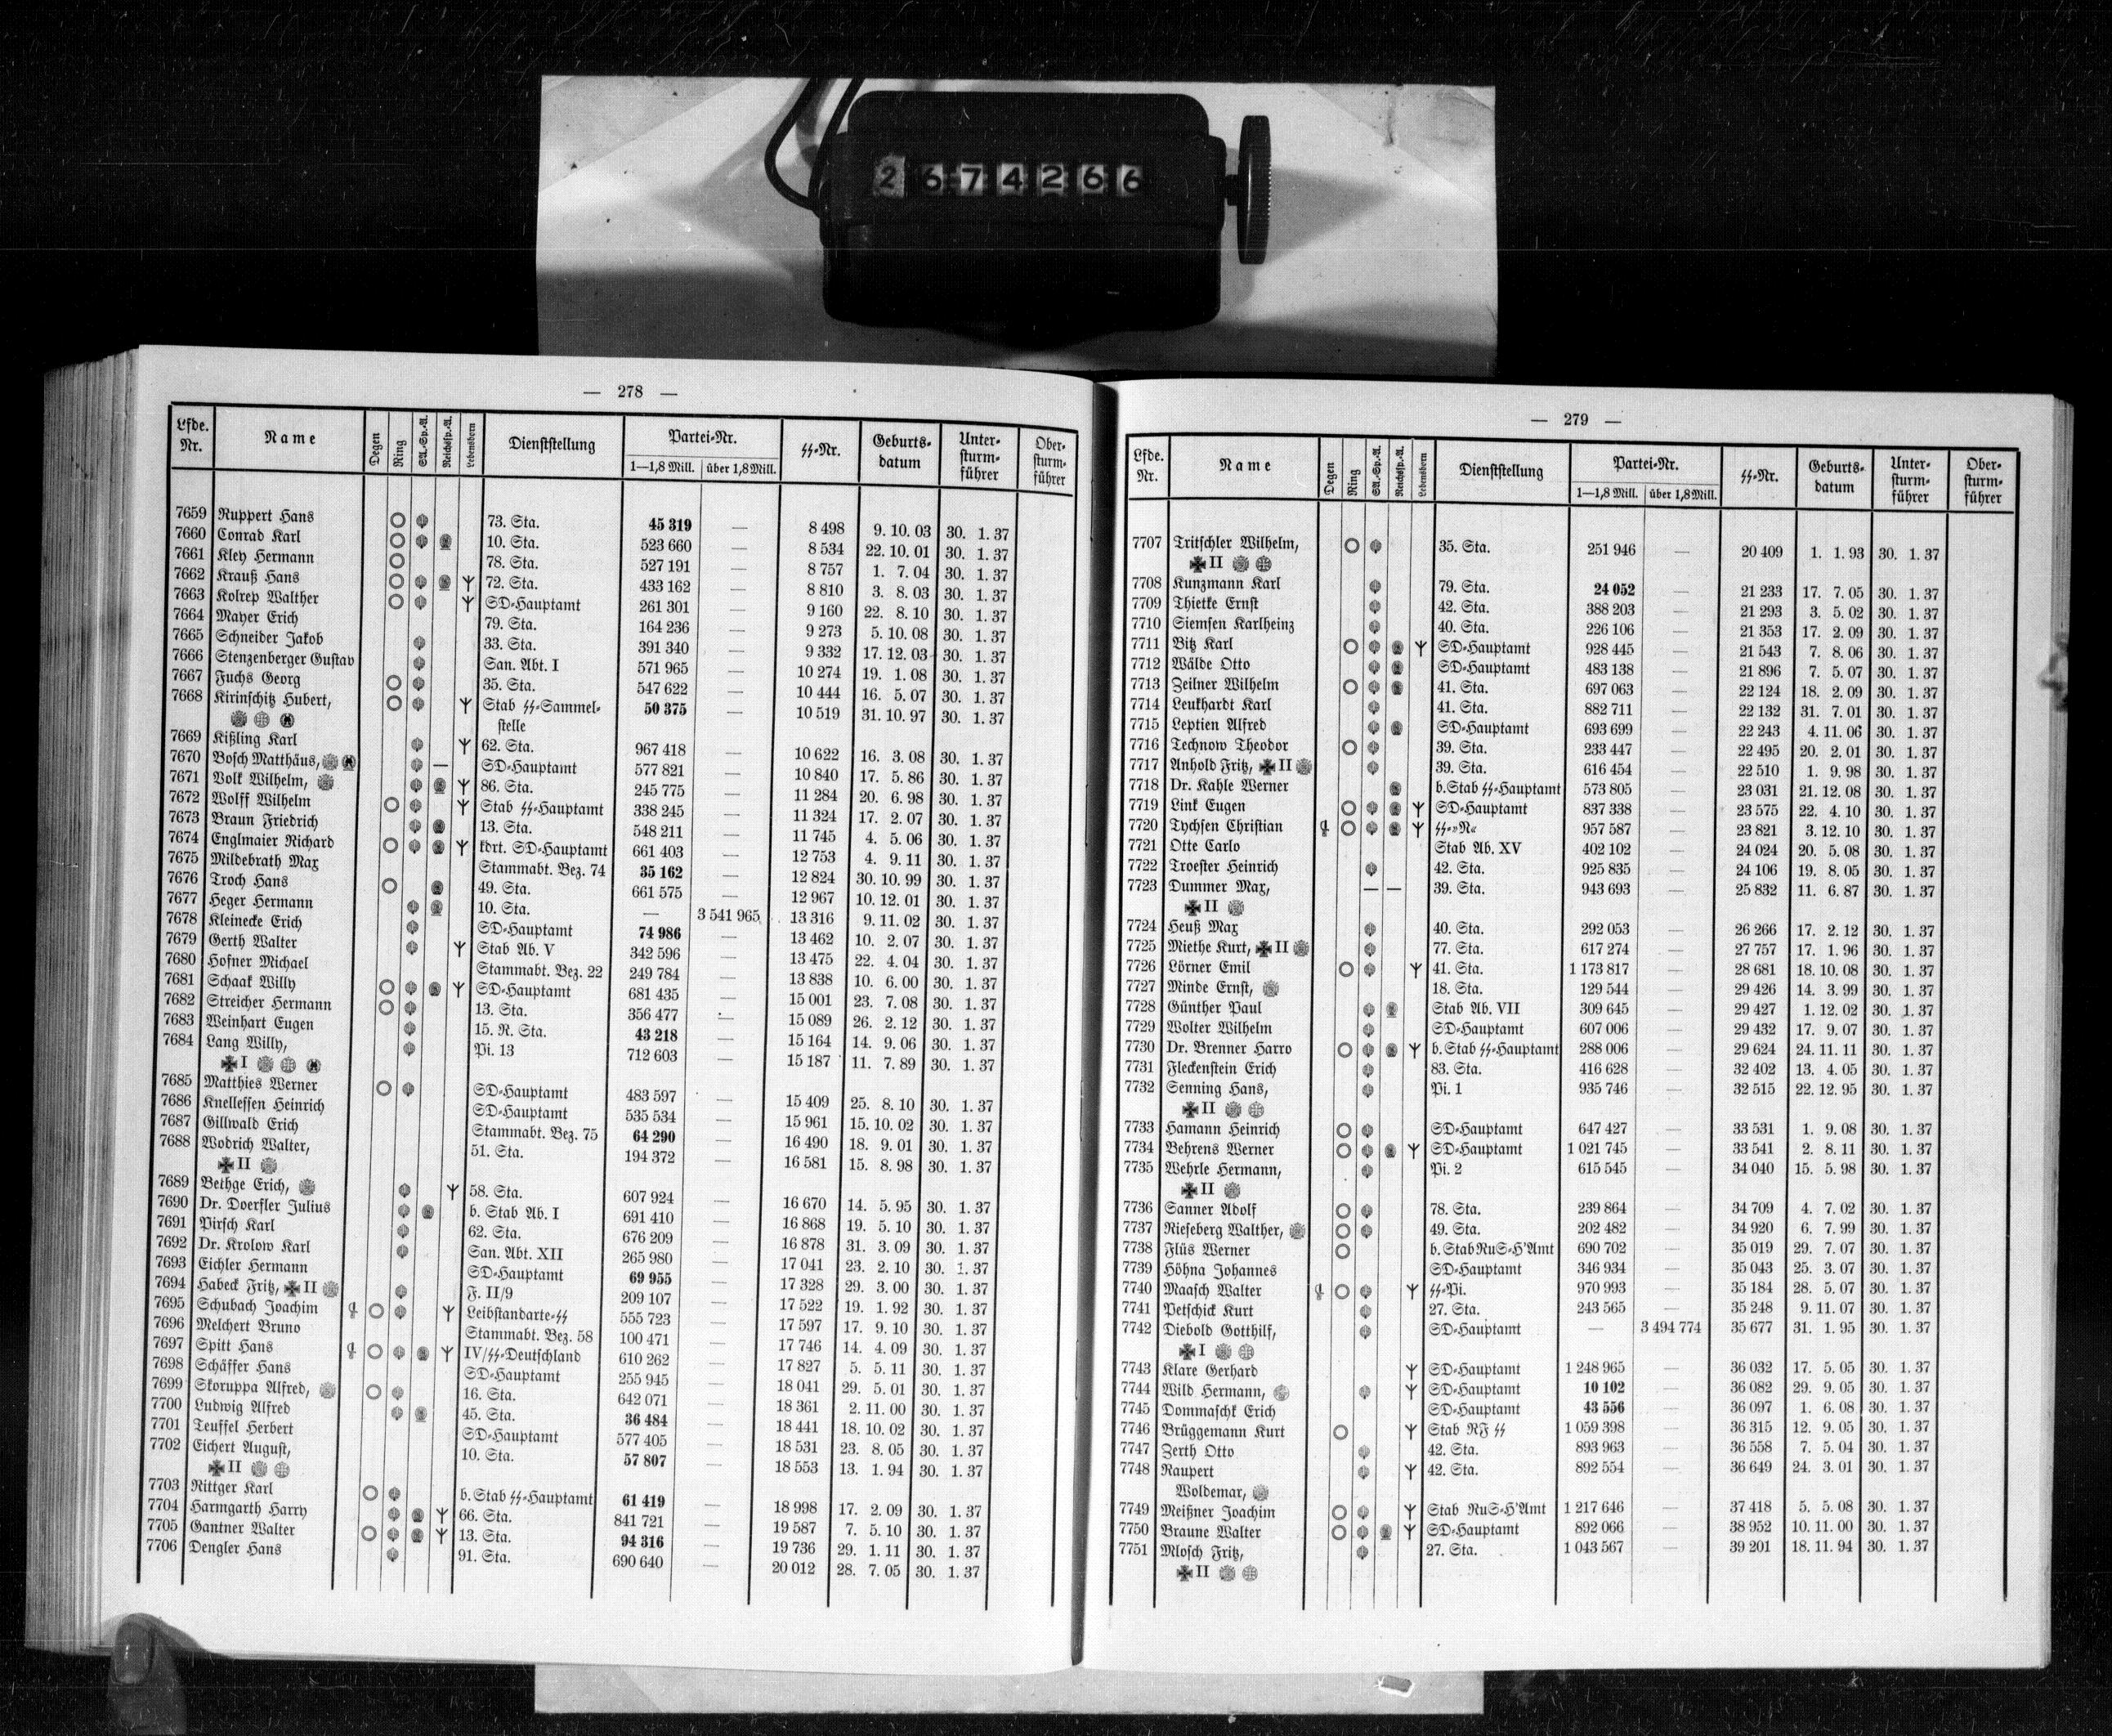 2674266
— 278 —
Lfde. Nr. Name Degen Ring SA.-Sp.-A. Reichssp.-A. Lebensborn Dienststellung Partei-Nr. 1—1,8 Mill. über 1,8 Mill. SS-Nr. Geburts-datum Unter-sturm-führer Ober-sturm-führer
7659 Ruppert Hans 73. Sta. 45 319 — 8 498 9. 10. 03 30. 1. 37
7660 Conrad Karl 10. Sta. 523 660 — 8 534 22. 10. 01 30. 1. 37
7661 Kley Hermann 78. Sta. 527 191 — 8 757 1. 7. 04 30. 1. 37
7662 Krauß Hans 72. Sta. 433 162 — 8 810 3. 8. 03 30. 1. 37
7663 Kolrep Walther SD-Hauptamt 261 301 — 9 160 22. 8. 10 30. 1. 37
7664 Mayer Erich 79. Sta. 164 236 — 9 273 5. 10. 08 30. 1. 37
7665 Schneider Jakob 33. Sta. 391 340 — 9 332 17. 12. 03 30. 1. 37
7666 Stenzenberger Gustav San. Abt. I 571 965 — 10 274 19. 1. 08 30. 1. 37
7667 Fuchs Georg 35. Sta. 547 622 — 10 444 16. 5. 07 30. 1. 37
7668 Kirinschitz Hubert, Stab SS-Sammel- 50 375 — 10 519 31. 10. 97 30. 1. 37
stelle
7669 Kißling Karl 62. Sta. 967 418 — 10 622 16. 3. 08 30. 1. 37
7670 Bosch Matthäus, — SD-Hauptamt 577 821 — 10 840 17. 5. 86 30. 1. 37
7671 Volk Wilhelm, 86. Sta. 245 775 — 11 284 20. 6. 98 30. 1. 37
7672 Wolff Wilhelm Stab SS-Hauptamt 338 245 — 11 324 17. 2. 07 30. 1. 37
7673 Braun Friedrich 13. Sta. 548 211 — 11 745 4. 5. 06 30. 1. 37
7674 Englmaier Richard kdrt. SD-Hauptamt 661 403 — 12 753 4. 9. 11 30. 1. 37
7675 Mildebrath Max Stammabt. Bez. 74 35 162 — 12 824 30. 10. 99 30. 1. 37
7676 Troch Hans 49. Sta. 661 575 — 12 967 10. 12. 01 30. 1. 37
7677 Heger Hermann 10. Sta. — 3 541 965 13 316 9. 11. 02 30. 1. 37
7678 Kleinecke Erich SD-Hauptamt 74 986 — 13 462 10. 2. 07 30. 1. 37
7679 Gerth Walter Stab Ab. V 342 596 — 13 475 22. 4. 04 30. 1. 37
7680 Hofner Michael Stammabt. Bez. 22 249 784 — 13 838 10. 6. 00 30. 1. 37
7681 Schaak Willy SD-Hauptamt 681 435 — 15 001 23. 7. 08 30. 1. 37
7682 Streicher Hermann 13. Sta. 356 477 — 15 089 26. 2. 12 30. 1. 37
7683 Weinhart Eugen 15. R. Sta. 43 218 — 15 164 14. 9. 06 30. 1. 37
7684 Lang Willy, Pi. 13 712 603 — 15 187 11. 7. 89 30. 1. 37
I
7685 Matthies Werner SD-Hauptamt 483 597 — 15 409 25. 8. 10 30. 1. 37
7686 Knellessen Heinrich SD-Hauptamt 535 534 — 15 961 15. 10. 02 30. 1. 37
7687 Gillwald Erich Stammabt. Bez. 75 64 290 — 16 490 18. 9. 01 30. 1. 37
7688 Wodrich Walter, 51. Sta. 194 372 — 16 581 15. 8. 98 30. 1. 37
II
7689 Bethge Erich, 58. Sta. 607 924 — 16 670 14. 5. 95 30. 1. 37
7690 Dr. Doerfler Julius b. Stab Ab. I 691 410 — 16 868 19. 5. 10 30. 1. 37
7691 Pirsch Karl 62. Sta. 676 209 — 16 878 31. 3. 09 30. 1. 37
7692 Dr. Krolow Karl San. Abt. XII 265 980 — 17 041 23. 2. 10 30. 1. 37
7693 Eichler Hermann SD-Hauptamt 69 955 — 17 328 29. 3. 00 30. 1. 37
7694 Habeck Fritz, II F. II/9 209 107 — 17 522 19. 1. 92 30. 1. 37
7695 Schubach Joachim Leibstandarte-SS 555 723 — 17 597 17. 9. 10 30. 1. 37
7696 Melchert Bruno Stammabt. Bez. 58 100 471 — 17 746 14. 4. 09 30. 1. 37
7697 Spitt Hans IV/SS-Deutschland 610 262 — 17 827 5. 5. 11 30. 1. 37
7698 Schäffer Hans SD-Hauptamt 255 945 — 18 041 29. 5. 01 30. 1. 37
7699 Skoruppa Alfred, 16. Sta. 642 071 — 18 361 2. 11. 00 30. 1. 37
7700 Ludwig Alfred 45. Sta. 36 484 — 18 441 18. 10. 02 30. 1. 37
7701 Teuffel Herbert SD-Hauptamt 577 405 — 18 531 23. 8. 05 30. 1. 37
7702 Eichert August, 10. Sta. 57 807 — 18 553 13. 1. 94 30. 1. 37
II
7703 Rittger Karl b. Stab SS-Hauptamt 61 419 — 18 998 17. 2. 09 30. 1. 37
7704 Harmgarth Harry 66. Sta. 841 721 — 19 587 7. 5. 10 30. 1. 37
7705 Gantner Walter 13. Sta. 94 316 — 19 736 29. 1. 11 30. 1. 37
7706 Dengler Hans 91. Sta. 690 640 — 20 012 28. 7. 05 30. 1. 37
— 279 —
Lfde. Nr. Name Degen Ring SA.-Sp.-A. Reichssp.-A. Lebensborn Dienststellung Partei-Nr. 1—1,8 Mill. über 1,8 Mill. SS-Nr. Geburts-datum Unter-sturm-führer Ober-sturm-führer
7707 Tritschler Wilhelm, 35. Sta. 251 946 — 20 409 1. 1. 93 30. 1. 37
II
7708 Kunzmann Karl 79. Sta. 24 052 — 21 233 17. 7. 05 30. 1. 37
7709 Thietke Ernst 42. Sta. 388 203 — 21 293 3. 5. 02 30. 1. 37
7710 Siemsen Karlheinz 40. Sta. 226 106 — 21 353 17. 2. 09 30. 1. 37
7711 Bitz Karl SD-Hauptamt 928 445 — 21 543 7. 8. 06 30. 1. 37
7712 Wälde Otto SD-Hauptamt 483 138 — 21 896 7. 5. 07 30. 1. 37
7713 Zeilner Wilhelm 41. Sta. 697 063 — 22 124 18. 2. 09 30. 1. 37
7714 Leukhardt Karl 41. Sta. 882 711 — 22 132 31. 7. 01 30. 1. 37
7715 Leptien Alfred SD-Hauptamt 693 699 — 22 243 4. 11. 06 30. 1. 37
7716 Technow Theodor 39. Sta. 233 447 — 22 495 20. 2. 01 30. 1. 37
7717 Anhold Fritz, II 39. Sta. 616 454 — 22 510 1. 9. 98 30. 1. 37
7718 Dr. Kahle Werner b. Stab SS-Hauptamt 573 805 — 23 031 21. 12. 08 30. 1. 37
7719 Link Eugen SD-Hauptamt 837 338 — 23 575 22. 4. 10 30. 1. 37
7720 Tychsen Christian SS-»N« 957 587 — 23 821 3. 12. 10 30. 1. 37
7721 Otte Carlo Stab Ab. XV 402 102 — 24 024 20. 5. 08 30. 1. 37
7722 Troester Heinrich 42. Sta. 925 835 — 24 106 19. 8. 05 30. 1. 37
7723 Dummer Max, — — 39. Sta. 943 693 — 25 832 11. 6. 87 30. 1. 37
II
7724 Heuß Max 40. Sta. 292 053 — 26 266 17. 2. 12 30. 1. 37
7725 Miethe Kurt, II 77. Sta. 617 274 — 27 757 17. 1. 96 30. 1. 37
7726 Lörner Emil 41. Sta. 1 173 817 — 28 681 18. 10. 08 30. 1. 37
7727 Minde Ernst, 18. Sta. 129 544 — 29 426 14. 3. 99 30. 1. 37
7728 Günther Paul Stab Ab. VII 309 645 — 29 427 1. 12. 02 30. 1. 37
7729 Wolter Wilhelm SD-Hauptamt 607 006 — 29 432 17. 9. 07 30. 1. 37
7730 Dr. Brenner Harro b. Stab SS-Hauptamt 288 006 — 29 624 24. 11. 11 30. 1. 37
7731 Fleckenstein Erich 83. Sta. 416 628 — 32 402 13. 4. 05 30. 1. 37
7732 Senning Hans, Pi. 1 935 746 — 32 515 22. 12. 95 30. 1. 37
II
7733 Hamann Heinrich SD-Hauptamt 647 427 — 33 531 1. 9. 08 30. 1. 37
7734 Behrens Werner SD-Hauptamt 1 021 745 — 33 541 2. 8. 11 30. 1. 37
7735 Wehrle Hermann, Pi. 2 615 545 — 34 040 15. 5. 98 30. 1. 37
II
7736 Sanner Adolf 78. Sta. 239 864 — 34 709 4. 7. 02 30. 1. 37
7737 Rieseberg Walther, 49. Sta. 202 482 — 34 920 6. 7. 99 30. 1. 37
7738 Flüs Werner b. Stab RuS-H'Amt 690 702 — 35 019 29. 7. 07 30. 1. 37
7739 Höhna Johannes SD-Hauptamt 346 934 — 35 043 25. 3. 07 30. 1. 37
7740 Maasch Walter SS-Pi. 970 993 — 35 184 28. 5. 07 30. 1. 37
7741 Petschick Kurt 27. Sta. 243 565 — 35 248 9. 11. 07 30. 1. 37
7742 Diebold Gotthilf, SD-Hauptamt — 3 494 774 35 677 31. 1. 95 30. 1. 37
I
7743 Klare Gerhard SD-Hauptamt 1 248 965 — 36 032 17. 5. 05 30. 1. 37
7744 Wild Hermann, SD-Hauptamt 10 102 — 36 082 29. 9. 05 30. 1. 37
7745 Dommaschk Erich SD-Hauptamt 43 556 — 36 097 1. 6. 08 30. 1. 37
7746 Brüggemann Kurt Stab RF SS 1 059 398 — 36 315 12. 9. 05 30. 1. 37
7747 Zerth Otto 42. Sta. 893 963 — 36 558 7. 5. 04 30. 1. 37
7748 Raupert 42. Sta. 892 554 — 36 649 24. 3. 01 30. 1. 37
Woldemar,
7749 Meißner Joachim Stab RuS-H'Amt 1 217 646 — 37 418 5. 5. 08 30. 1. 37
7750 Braune Walter SD-Hauptamt 892 066 — 38 952 10. 11. 00 30. 1. 37
7751 Mlosch Fritz, 27. Sta. 1 043 567 — 39 201 18. 11. 94 30. 1. 37
II